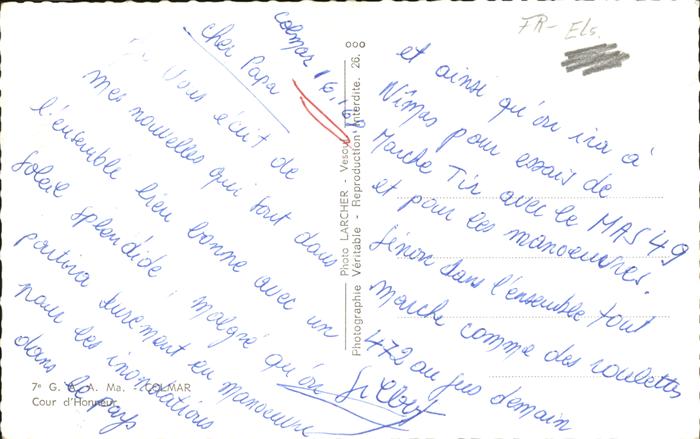 FR - Els.
Colmar 16.
Cher Papa
Vous écrit de
mes nouvelles qui tout dans
l'ensemble bien bonne avec un
Soleil splendide ! malgré qu'on
partira surement en manoeuvre
pour les inondations
dans le pays
et ainsi qu'on ira à
Nîmes pour essais de
Marche Tir avec le MAS 49
et pour les manoeuvres.
Sinon dans l'ensemble tout
marche comme des roulettes
472 au jus demain
Photo LARCHER - Vesoul
Photographie Véritable - Reproduction Interdite. 26.
7e G. A. A. Ma. - COLMAR
Cour d'Honneur